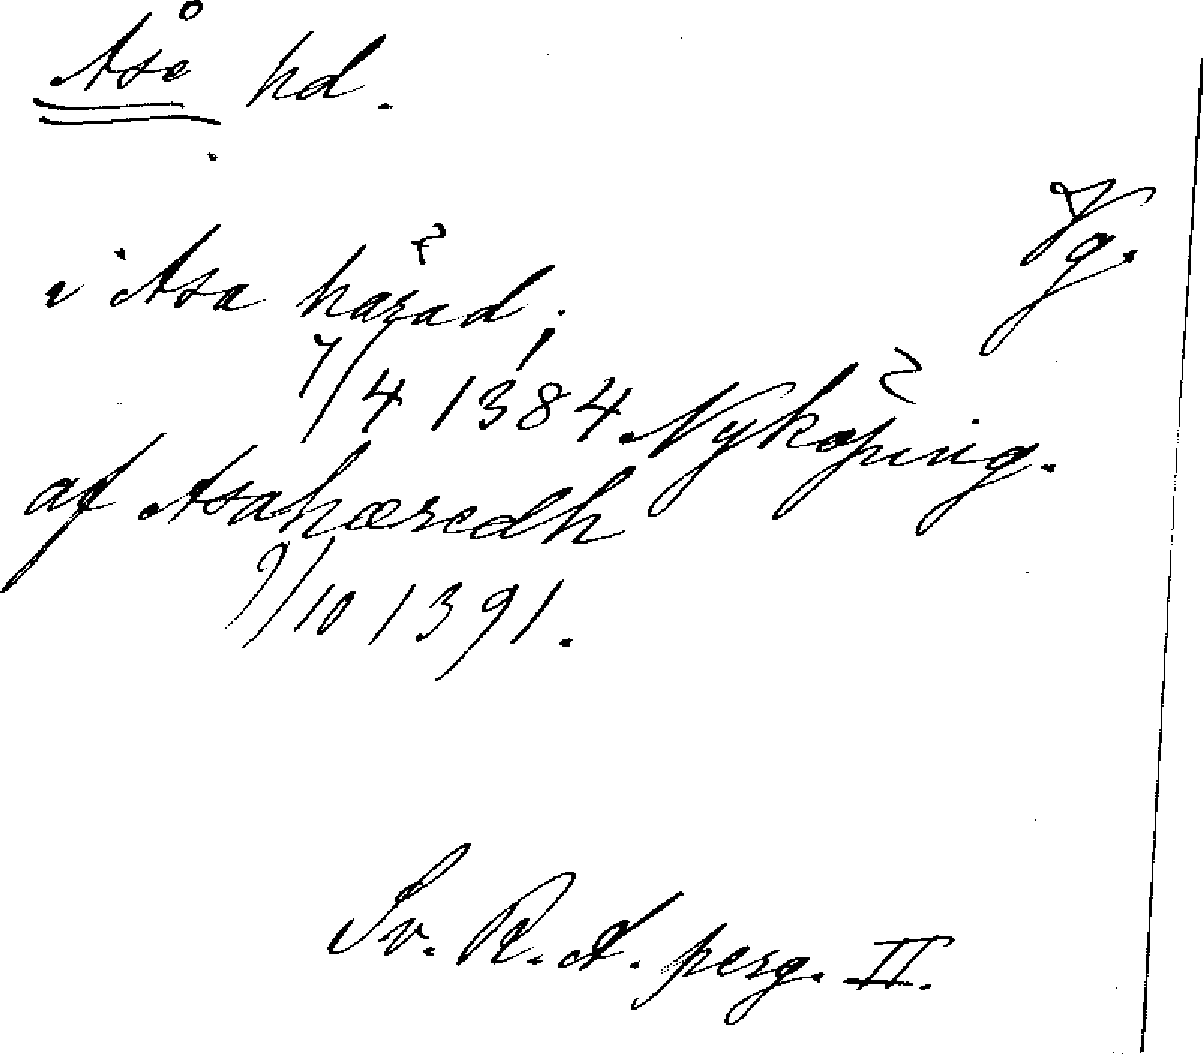 Åse hd.
Vg.
i Asa härad;
7/4 1384 Nyköping.
af Asahæredh
9/10 1391.
Sv. R. A. perg. II.